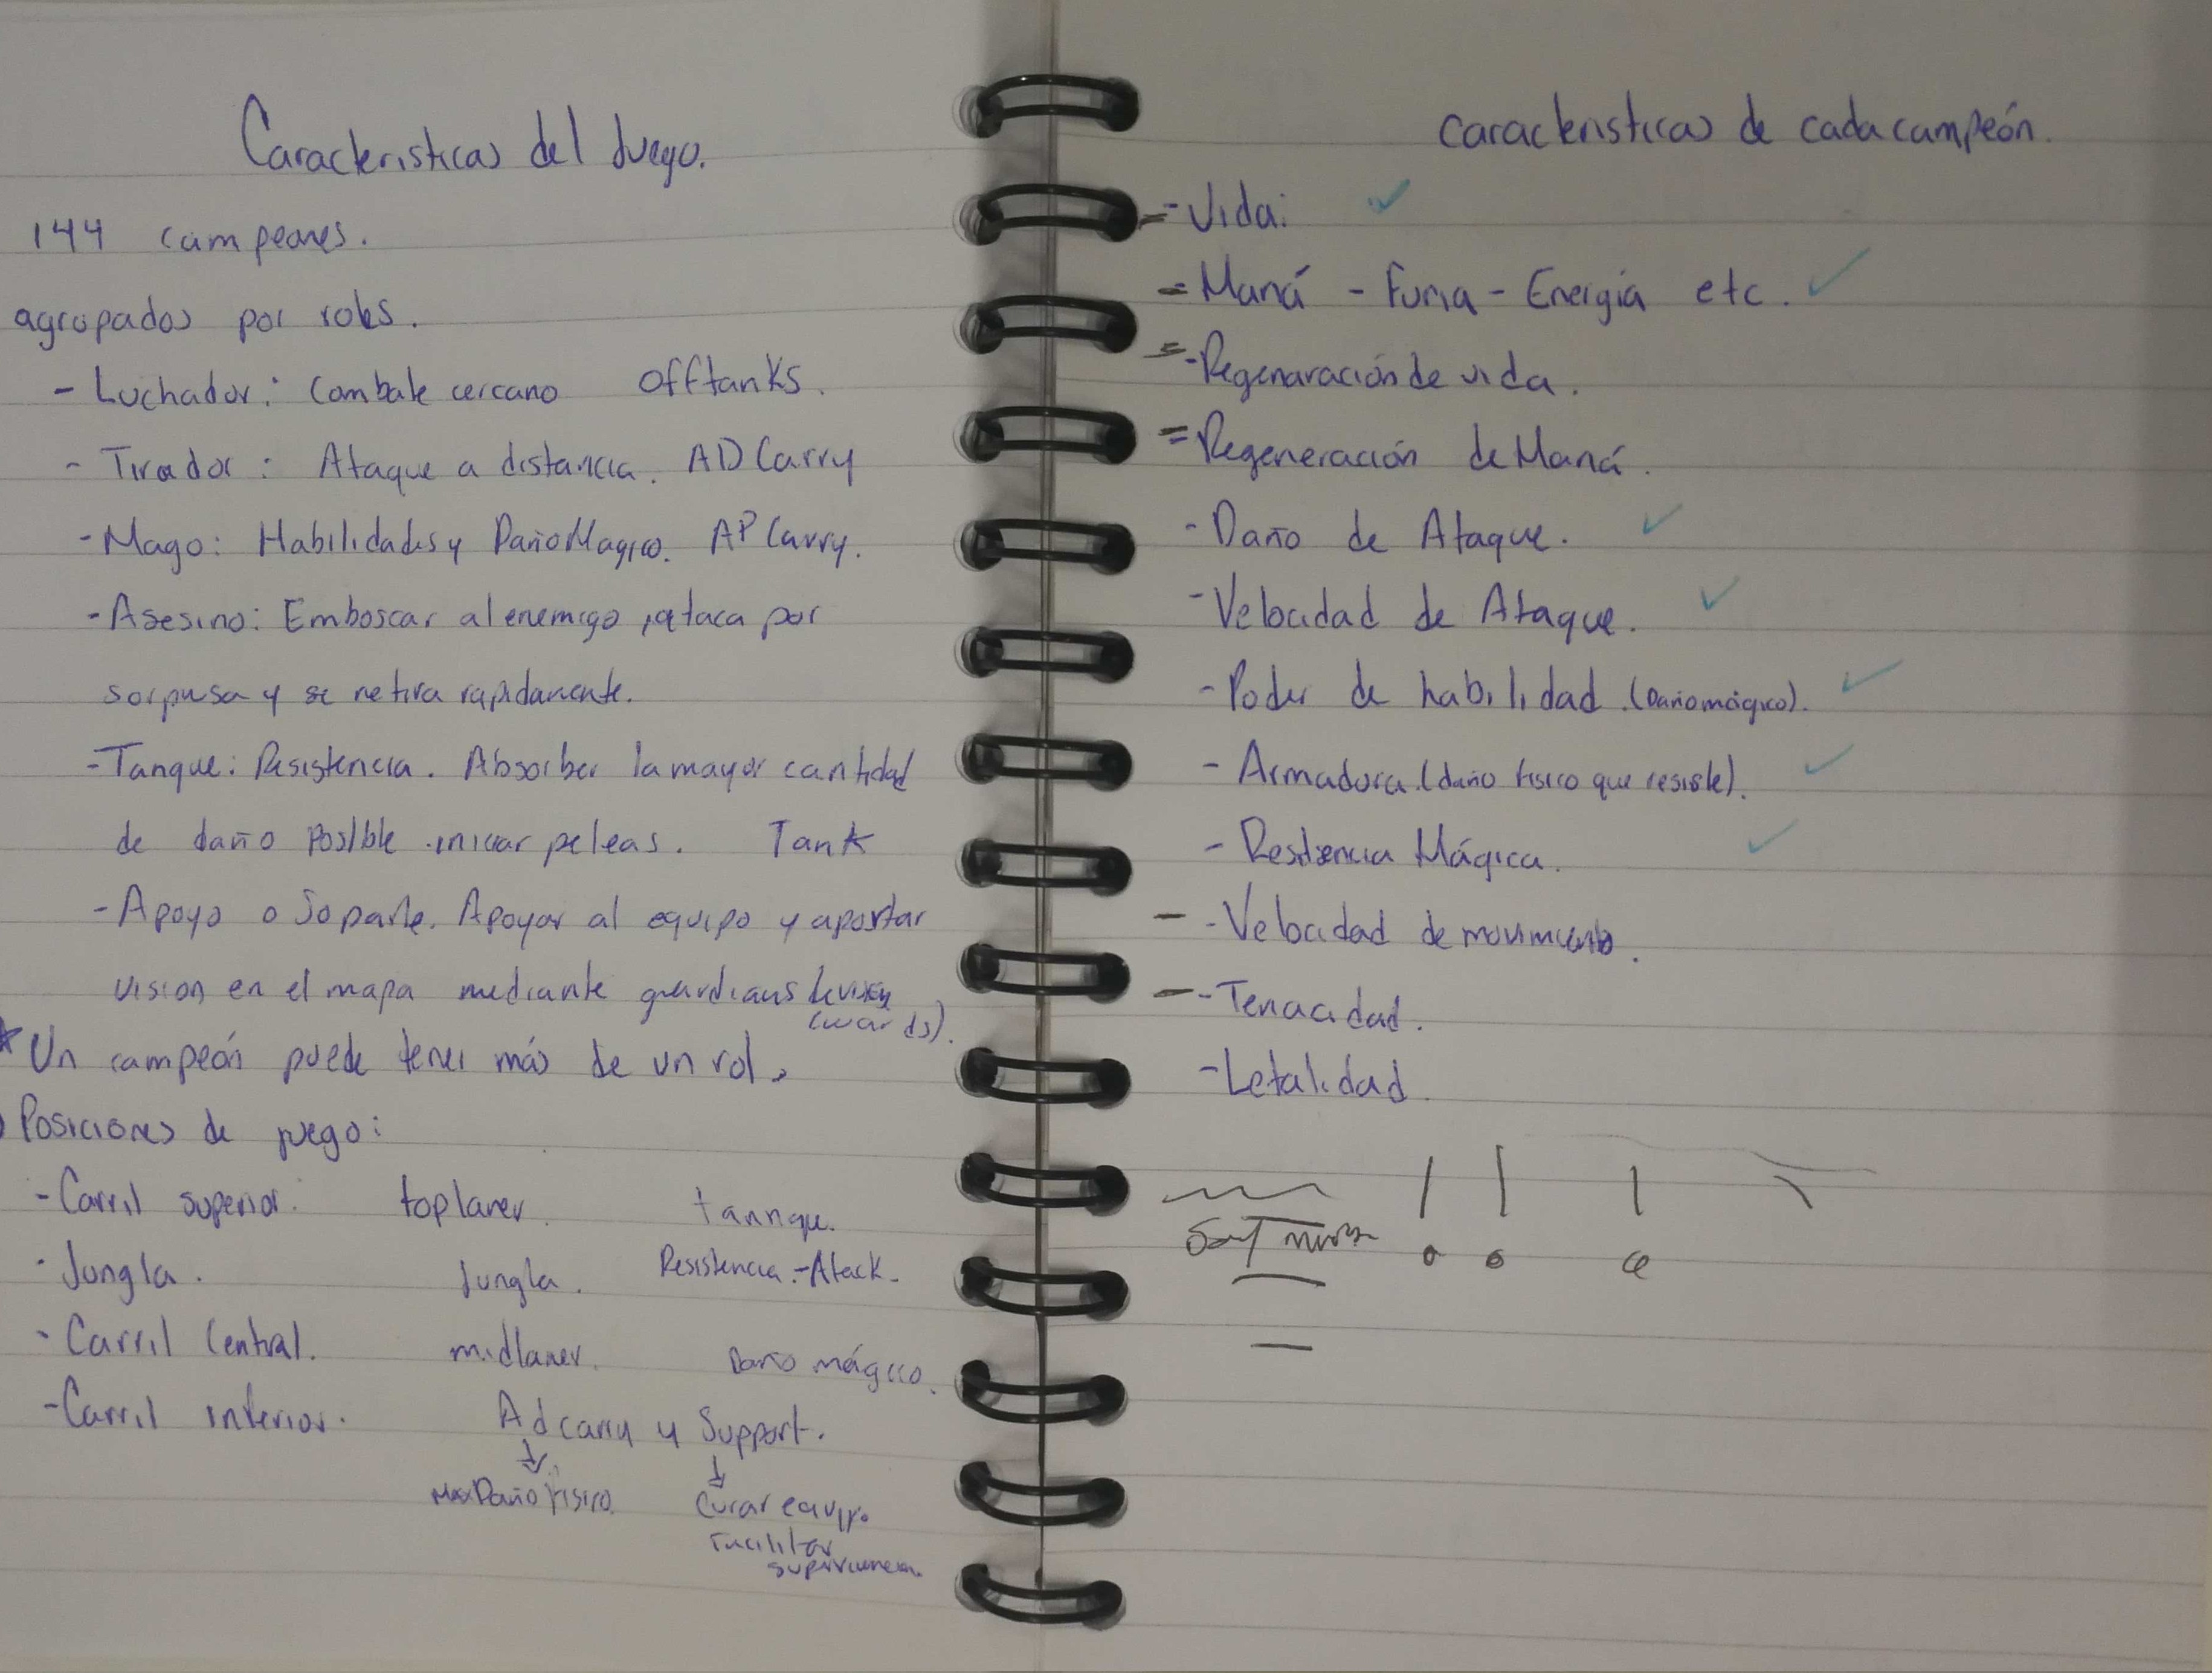 Caracteristicas del Juego.
144 campeones.
agrupados por roles.
- Luchador: Combate cercano offtanks.
- Tirador: Ataque a distancia. AD Carry
- Mago: Habilidades y Daño Magico. AP Carry.
- Asesino: Emboscar al enemigo, ataca por
sorpresa y se retira rapidamente.
- Tanque: Resistencia. Absorber la mayor cantidad
de daño posible iniciar peleas. Tank
- Apoyo o Soporte. Apoyar al equipo y aportar
vision en el mapa mediante guardianes de vision
(wards).
* Un campeón puede tener más de un rol.
Posiciones de juego:
- Carril superior. toplaner. tannque.
- Jungla. Jungla. Resistencia.-Atack.
- Carril Central. midlaner. Daño mágico.
- Carril inferior. Ad carry y Support.
Max Daño fisico. Curar equipo.
Facilitar
supervivencia.
Caracteristicas de cada campeón.
- Vida: ✓
- Maná - Furia - Energía etc. ✓
- Regenaración de vida.
- Regeneración de Maná.
- Daño de Ataque. ✓
- Velocidad de Ataque. ✓
- Poder de habilidad. (Daño mágico). ✓
- Armadura. (daño fisico que resiste). ✓
- Resistencia Mágica. ✓
- Velocidad de movimiento.
- Tenacidad.
- Letalidad.